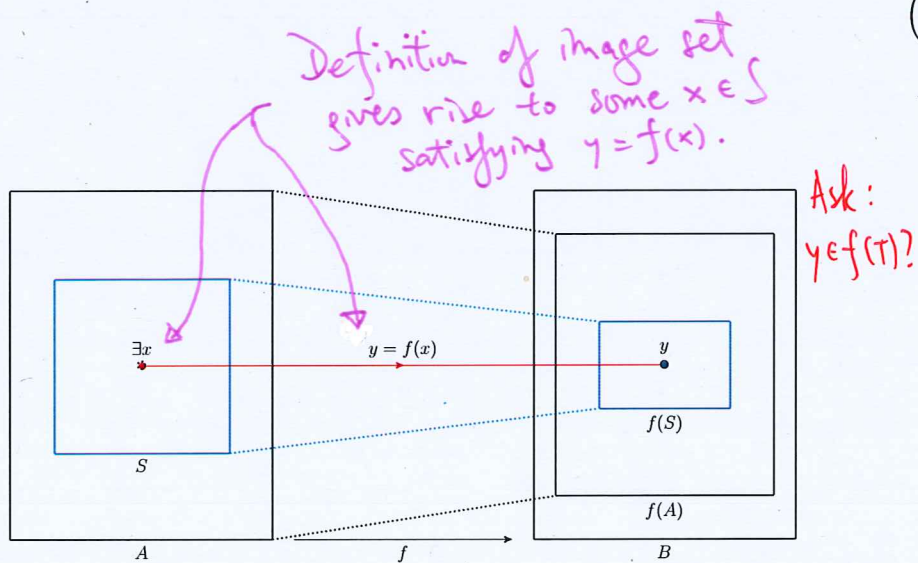 Definition of image set
gives rise to some x ∈ S
satisfying y = f(x).
Ask:
y ∈ f(T)?
∃x
y = f(x)
y
S
f(S)
f(A)
A
f
B